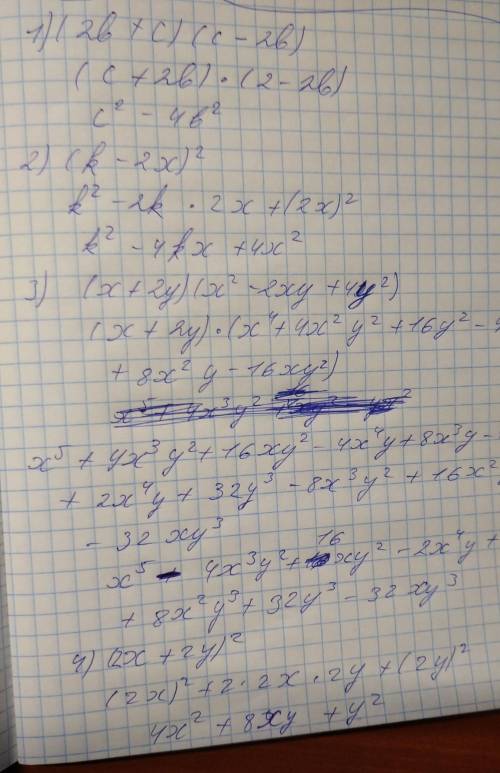 1) (2b + c) (c - 2b)
(c + 2b) · (2 - 2b)
c² - 4b²
2) (k - 2x)²
k² - 2k · 2x + (2x)²
k² - 4kx + 4x²
3) (x + 2y) (x² - 2xy + 4y²)
(x + 2y) · (x⁴ + 4x² y² + 16y² - 4
+ 8x² y - 16xy²)
x⁵ + 4x³y² + 16xy² - 4x⁴y + 8x³y -
+ 2x⁴y + 32y³ - 8x³y² + 16x²
- 32 xy³
x⁵ - 4x³y² + 16xy² - 2x⁴y +
+ 8x²y³ + 32y³ - 32xy³
4) (2x + 2y)²
(2x)² + 2 · 2x · 2y + (2y)²
4x² + 8xy + y²